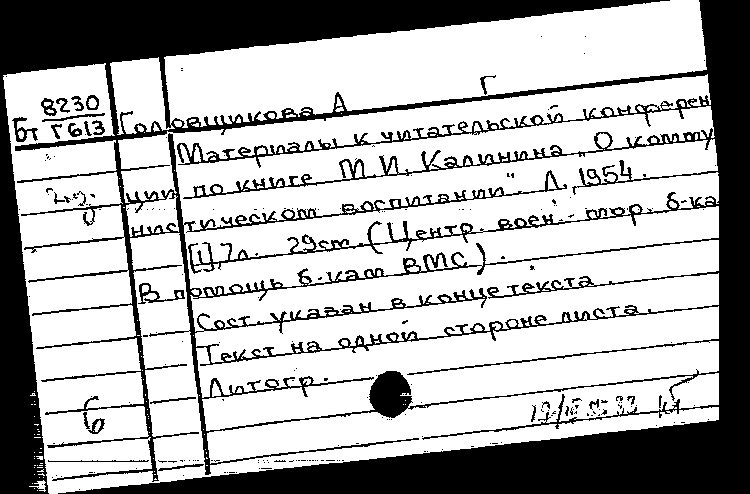 Г
8230
Бт Г613
Головщикова, А
Материалы к читательской конферен
ции по книге М.И. Калинина „О комму
нистическом воспитании". Л., 1954.
[1], 7л. 29см. (Центр. воен.-мор. б-ка
В помощь б-кам ВМС).
Сост. указан в конце текста.
Текст на одной стороне листа.
Литогр.
6